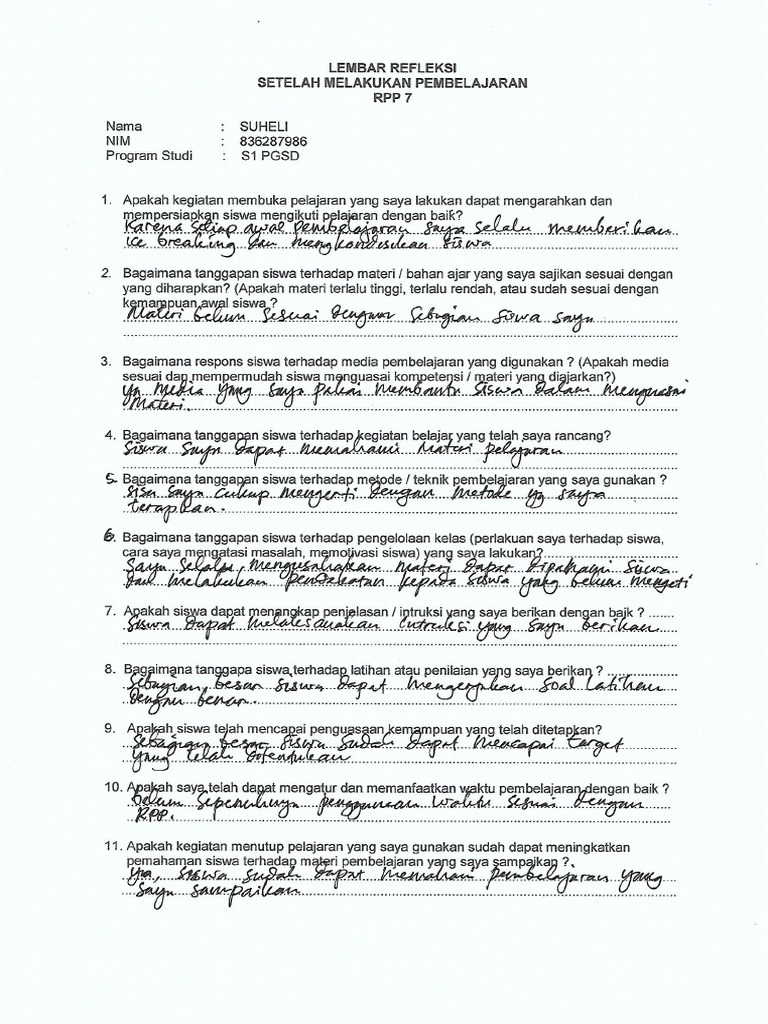 LEMBAR REFLEKSI
SETELAH MELAKUKAN PEMBELAJARAN
RPP 7
Nama : SUHELI
NIM : 836287986
Program Studi : S1 PGSD
1. Apakah kegiatan membuka pelajaran yang saya lakukan dapat mengarahkan dan
mempersiapkan siswa mengikuti pelajaran dengan baik?
Karena setiap awal pembelajaran saya selalu memberikan
ice breaking dan mengkondisikan siswa
2. Bagaimana tanggapan siswa terhadap materi / bahan ajar yang saya sajikan sesuai dengan
yang diharapkan? (Apakah materi terlalu tinggi, terlalu rendah, atau sudah sesuai dengan
kemampuan awal siswa ?
Materi belum sesuai dengan sebagian siswa saya
3. Bagaimana respons siswa terhadap media pembelajaran yang digunakan ? (Apakah media
sesuai dan mempermudah siswa menguasai kompetensi / materi yang diajarkan?)
ya Media yang saya pakai membantu siswa dalam menguasai
Materi.
4. Bagaimana tanggapan siswa terhadap kegiatan belajar yang telah saya rancang?
Siswa saya dapat memahami materi pelajaran
5. Bagaimana tanggapan siswa terhadap metode / teknik pembelajaran yang saya gunakan ?
sisw saya cukup mengerti dengan metode yg saya
terapkan.
6. Bagaimana tanggapan siswa terhadap pengelolaan kelas (perlakuan saya terhadap siswa,
cara saya mengatasi masalah, memotivasi siswa) yang saya lakukan?
Saya selalu mengusahakan materi dapat dipahami siswa
dan melakukan pendekatan kepada siswa yang belum mengeti
7. Apakah siswa dapat menangkap penjelasan / intruksi yang saya berikan dengan baik ?
Siswa dapat melaksanakan intruksi yang saya berikan
8. Bagaimana tanggapa siswa terhadap latihan atau penilaian yang saya berikan ?
Sebagian besar siswa dapat mengerjakan soal latihan
dengan benar.
9. Apakah siswa telah mencapai penguasaan kemampuan yang telah ditetapkan?
Sebagian besar siswa sudah dapat mencapai target
yang telah ditentukan
10. Apakah saya telah dapat mengatur dan memanfaatkan waktu pembelajaran dengan baik ?
belum sepenuhnya penggunaan waktu sesuai dengan
RPP.
11. Apakah kegiatan menutup pelajaran yang saya gunakan sudah dapat meningkatkan
pemahaman siswa terhadap materi pembelajaran yang saya sampaikan ?
ya, siswa sudah dapat memahami pembelajaran yang
saya sampaikan